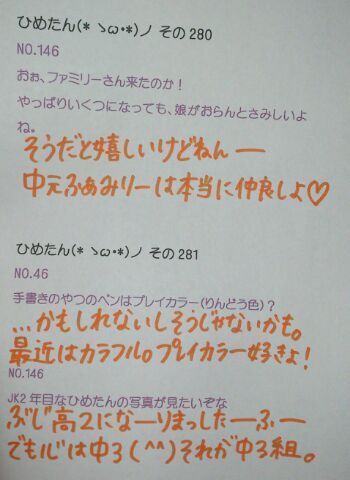 ひめたん(* ゝω･*)ノ その280
NO.146
おぉ、ファミリーさん来たのか！
やっぱりいくつになっても、娘がおらんとさみしいよ
ね。
そうだと嬉しいけどねんー
中元ふぁみりーは本当に仲良しよ♡
ひめたん(* ゝω･*)ノ その281
NO.46
手書きのやつのペンはプレイカラー(りんどう色)？
…かもしれないしそうじゃないかも。
最近はカラフル。プレイカラー好きよ！
NO.146
JK2年目なひめたんの写真が見たいぞな
ぶじ高2になーりまったーふー
でも心は中3(^^)それが中3組。